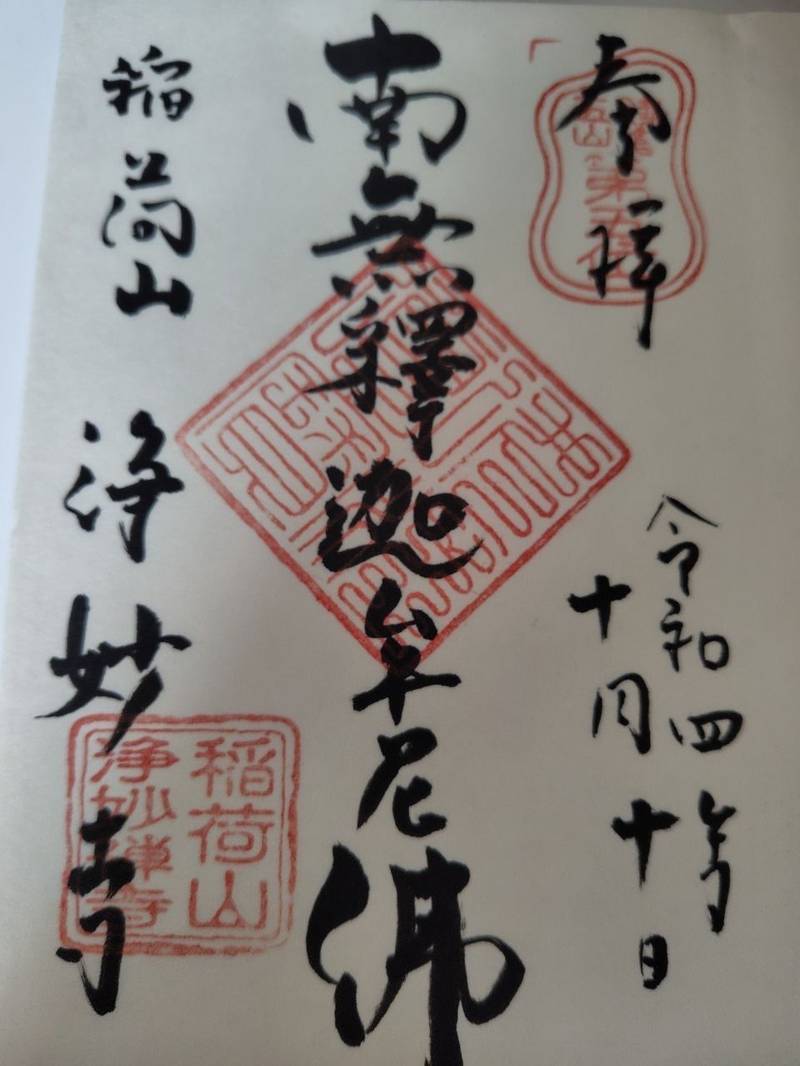 奉拝
令和四年
十月十日
南無釋迦牟尼佛
稲荷山 浄妙寺
稲荷山
浄妙禅寺